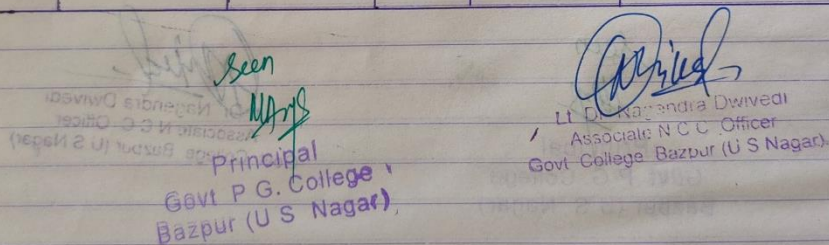 Seen
Principal
Govt P G. College
Bazpur (U S Nagar)
Lt Dr Nagendra Dwivedi
Associate N C C Officer
Govt College Bazpur (U S Nagar)